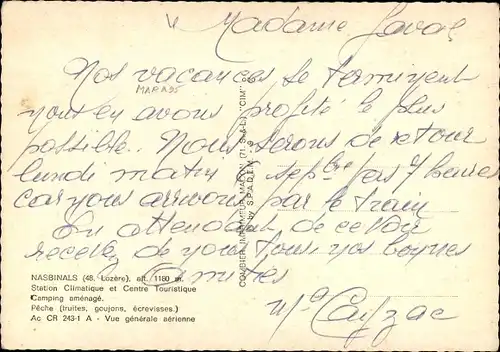 Madame Laval
Nos vacances se terminent
nous en avons profité le plus
possible. Nous serons de retour
lundi matin sepbre vers 7 heures
car nous arrivons par le train
En attendant de ce voir
recevez de nous tous nos bonnes
Amitiés
Cayzac
MARA95
COMBIER IMPRIMEUR MACON (71 S.-&-L.) "CIM"
by S.P.A.D.E.M.
NASBINALS (48, Lozère), alt. 1180 m.
Station Climatique et Centre Touristique
Camping aménagé.
Pêche (truites, goujons, écrevisses.)
Ac CR 243-1 A - Vue générale aérienne